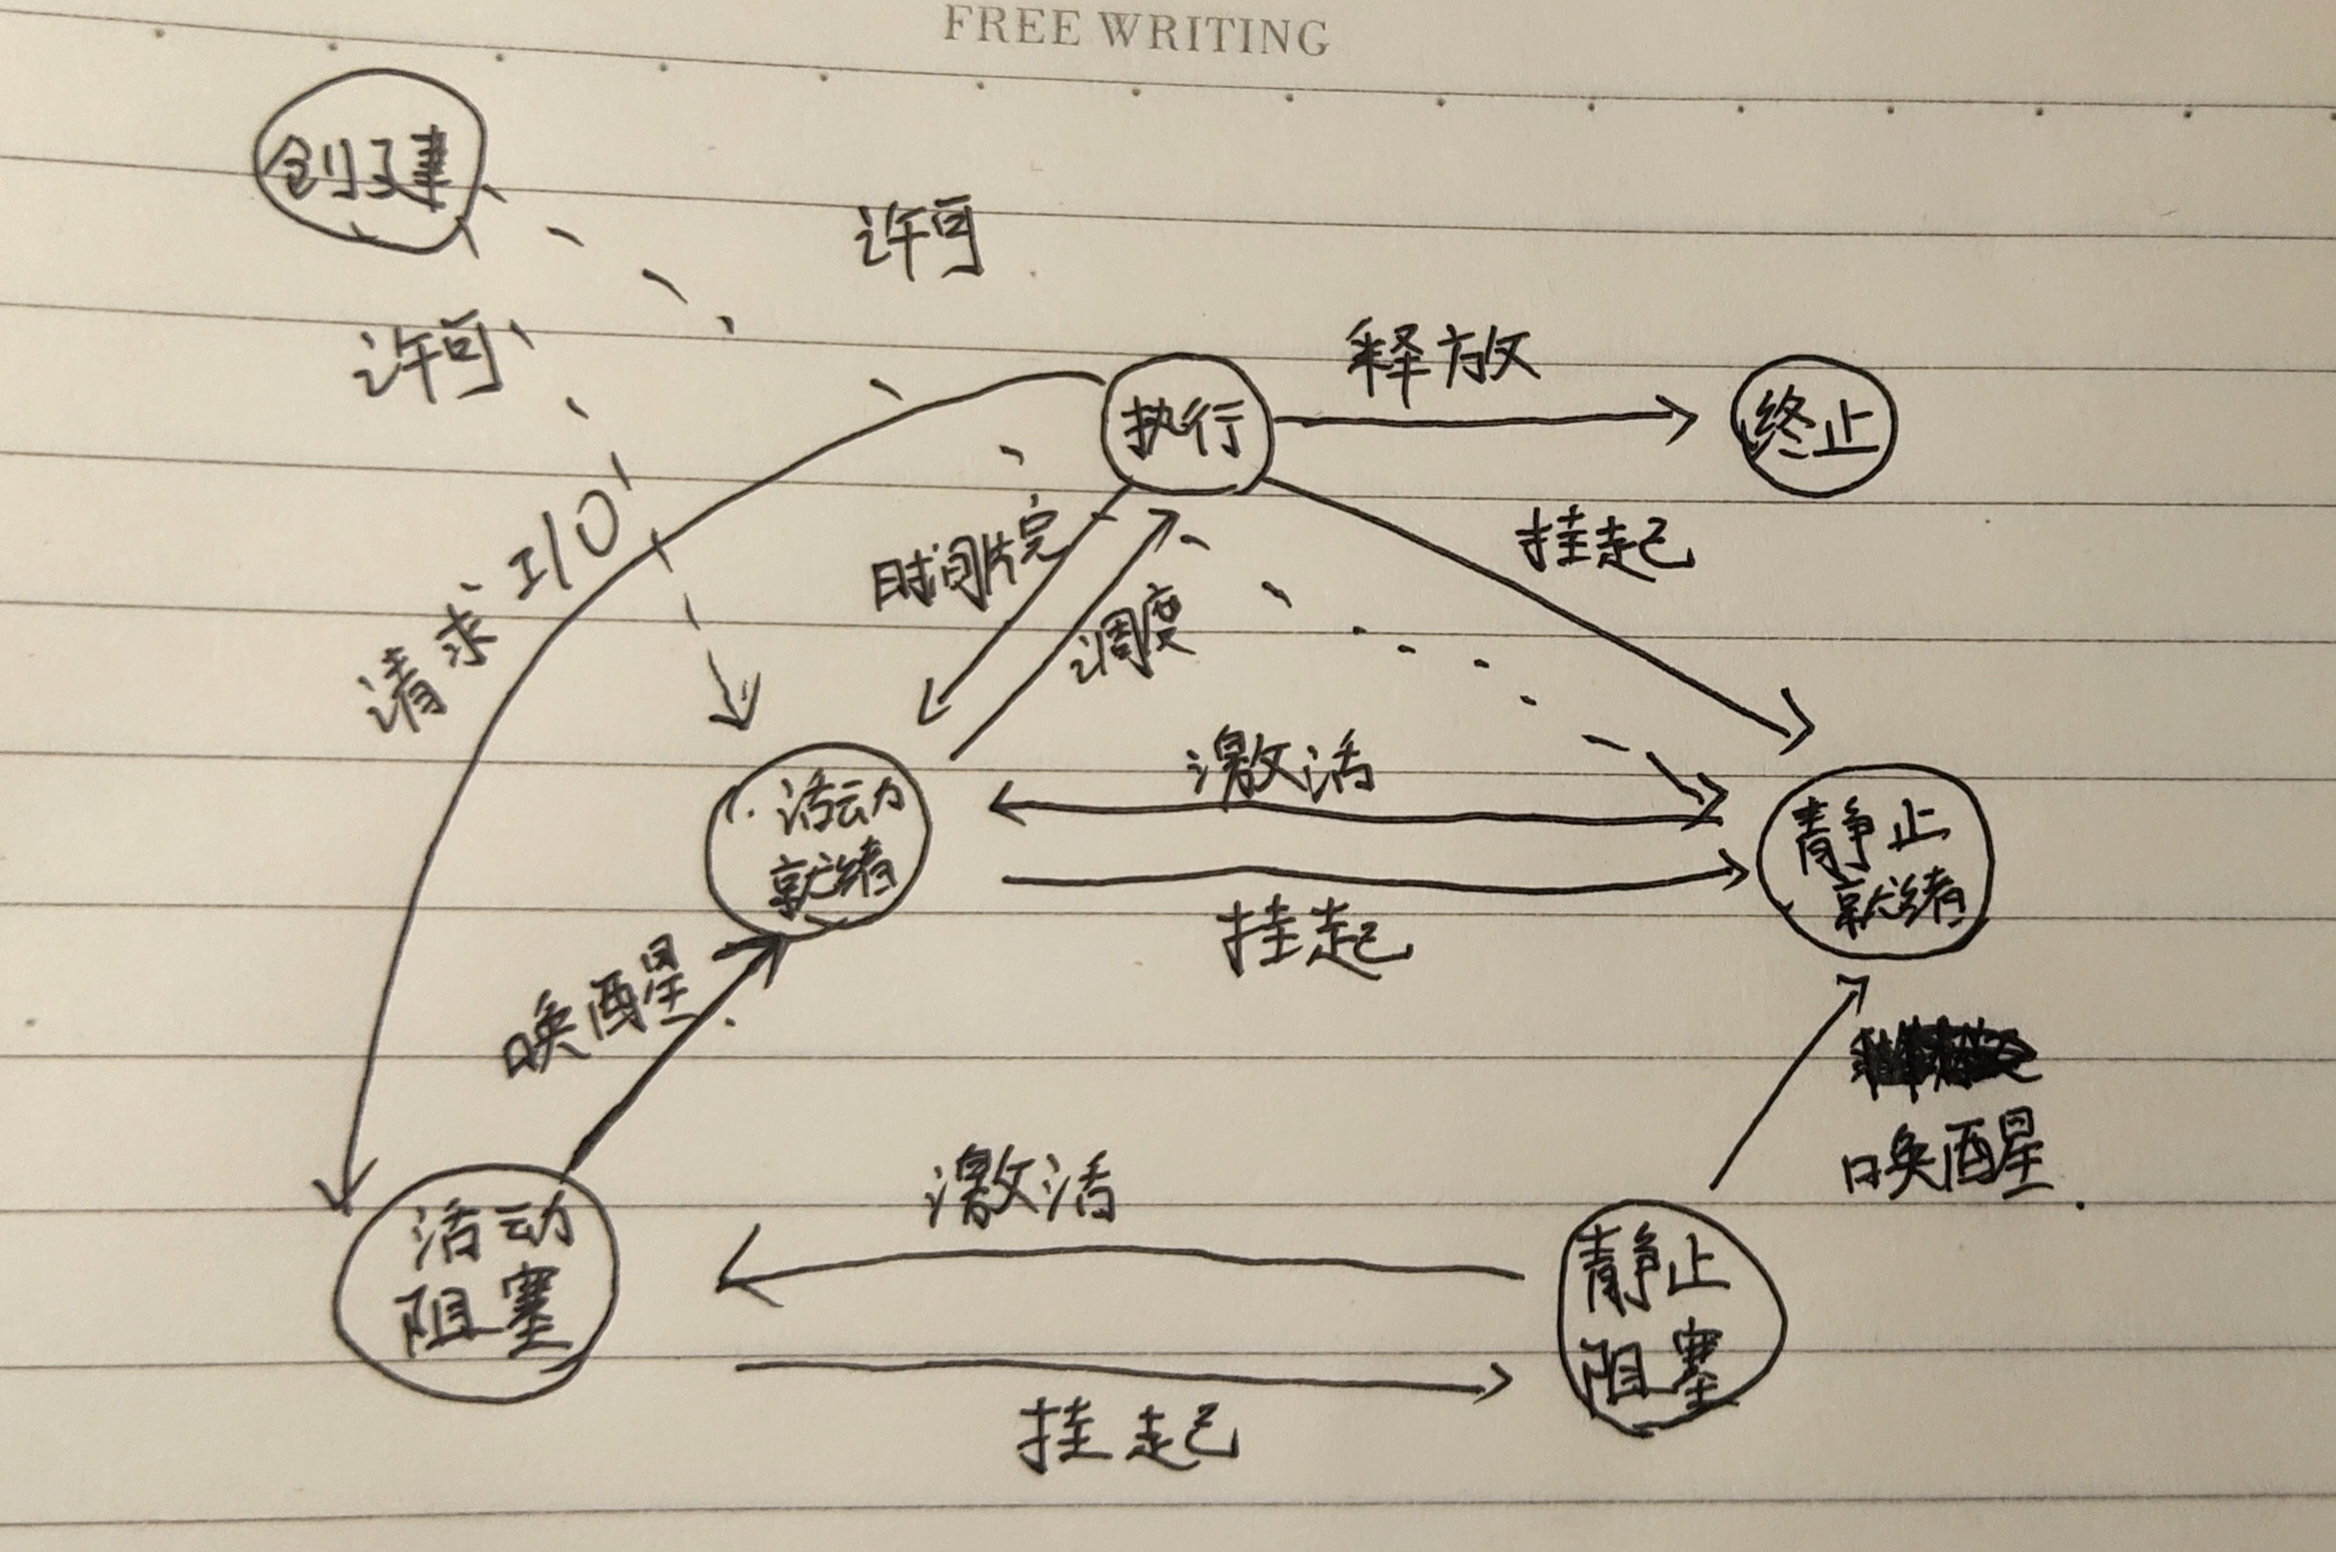 FREE WRITING
创建
许可
许可
释放
执行
终止
请求 I/O
时间片完
挂起
调度
激活
活动
就绪
静止
就绪
挂起
唤醒
唤醒
激活
活动
阻塞
静止
阻塞
挂起